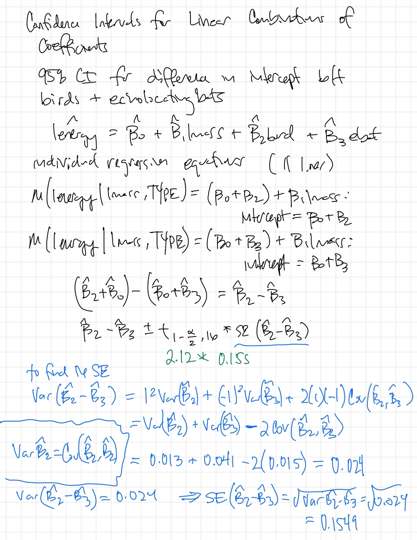 Confidence Intervals for Linear Combinations of
Coefficients
95% CI for difference in intercept bt
birds + echolocating bats
lenergy^ = β̂0 + β̂1 lmass + β̂2 bird + β̂3 ebat
individual regression equations (∥ lines)
μ(lenergy | lmass, TYPE) = (β0+β2) + β1 lmass:
intercept = β0+β2
μ(lenergy | lmass, TYPE) = (β0+β3) + β1 lmass:
intercept = β0+β3
(β̂2+β̂0) − (β̂0+β̂3) = β̂2 − β̂3
β̂2 − β̂3 ± t 1−α/2, 16 * SE(β̂2−β̂3)
2.12 * 0.155
to find the SE
Var(β̂2−β̂3) = 1² Var(β̂2) + (−1)² Var(β̂3) + 2(1)(−1) Cov(β̂2, β̂3)
= Var(β̂2) + Var(β̂3) − 2 Cov(β̂2, β̂3)
Var β̂2 = Cov(β̂2, β̂2)
= 0.013 + 0.041 − 2(0.015) = 0.024
Var(β̂2−β̂3) = 0.024 ⇒ SE(β̂2−β̂3) = √Var β̂2−β̂3 = √0.024
= 0.1549